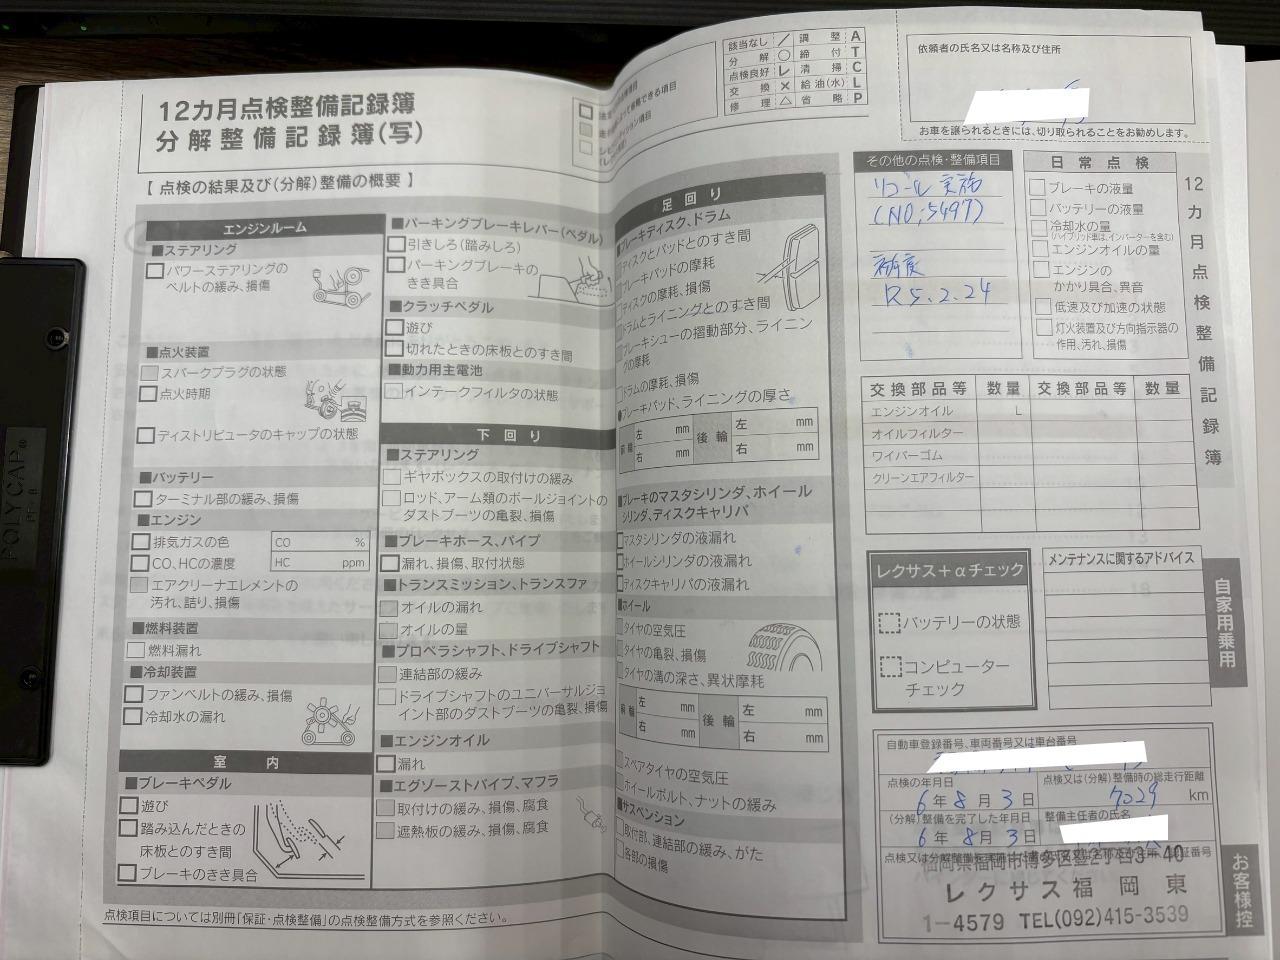 12カ月点検整備記録簿
分解整備記録簿(写)
【 点検の結果及び(分解)整備の概要 】
該当なし ／ 調整 A
分解 ○ 締付 T
点検良好 レ 清掃 C
交換 × 給油(水) L
修理 △ 省略 P
エンジンルーム
■ステアリング
パワーステアリングの
ベルトの緩み、損傷
■点火装置
スパークプラグの状態
点火時期
ディストリビュータのキャップの状態
■バッテリー
ターミナル部の緩み、損傷
■エンジン
排気ガスの色
CO %
CO、HCの濃度
HC ppm
エアクリーナエレメントの
汚れ、詰り、損傷
■燃料装置
燃料漏れ
■冷却装置
ファンベルトの緩み、損傷
冷却水の漏れ
室内
■ブレーキペダル
遊び
踏み込んだときの
床板とのすき間
ブレーキのきき具合
■パーキングブレーキレバー(ペダル)
引きしろ(踏みしろ)
パーキングブレーキの
きき具合
■クラッチペダル
遊び
切れたときの床板とのすき間
■動力用主電池
インテークフィルタの状態
下回り
■ステアリング
ギヤボックスの取付けの緩み
ロッド、アーム類のボールジョイントの
ダストブーツの亀裂、損傷
■ブレーキホース、パイプ
漏れ、損傷、取付状態
■トランスミッション、トランスファ
オイルの漏れ
オイルの量
■プロペラシャフト、ドライブシャフト
連結部の緩み
ドライブシャフトのユニバーサルジョ
イント部のダストブーツの亀裂、損傷
■エンジンオイル
漏れ
■エグゾーストパイプ、マフラ
取付けの緩み、損傷、腐食
遮熱板の緩み、損傷、腐食
足回り
■ブレーキディスク、ドラム
ディスクとパッドとのすき間
ブレーキパッドの摩耗
ディスクの摩耗、損傷
ドラムとライニングとのすき間
ブレーキシューの摺動部分、ライニン
グの摩耗
ドラムの摩耗、損傷
●ブレーキパッド、ライニングの厚さ
前輪 左 mm 後輪 左 mm
右 mm 右 mm
■ブレーキのマスタシリンダ、ホイール
シリンダ、ディスクキャリパ
マスタシリンダの液漏れ
ホイールシリンダの液漏れ
ディスクキャリパの液漏れ
■ホイール
タイヤの空気圧
タイヤの亀裂、損傷
タイヤの溝の深さ、異状摩耗
前輪 左 mm 後輪 左 mm
右 mm 右 mm
スペアタイヤの空気圧
ホイールボルト、ナットの緩み
■サスペンション
取付部、連結部の緩み、がた
各部の損傷
点検項目については別冊「保証・点検整備」の点検整備方式を参照ください。
依頼者の氏名又は名称及び住所
お車を譲られるときには、切り取られることをお勧めします。
その他の点検・整備項目
リコール実施
(NO;5497)
初度
R5.2.24
日常点検
ブレーキの液量
バッテリーの液量
冷却水の量
(ハイブリッド車は、インバーターを含む)
エンジンオイルの量
エンジンの
かかり具合、異音
低速及び加速の状態
灯火装置及び方向指示器の
作用、汚れ、損傷
12カ月点検整備記録簿
交換部品等 数量 交換部品等 数量
エンジンオイル L
オイルフィルター
ワイパーゴム
クリーンエアフィルター
レクサス+αチェック
バッテリーの状態
コンピューター
チェック
メンテナンスに関するアドバイス
自家用乗用
自動車登録番号、車両番号又は車台番号
点検の年月日
6年8月3日
点検又は(分解)整備時の総走行距離
7029 km
(分解)整備を完了した年月日
6年8月3日
整備主任者の氏名
福岡県福岡市博多区豊2丁目3-40
レクサス福岡東
1-4579 TEL(092)415-3539
お客様控
POLYCAP